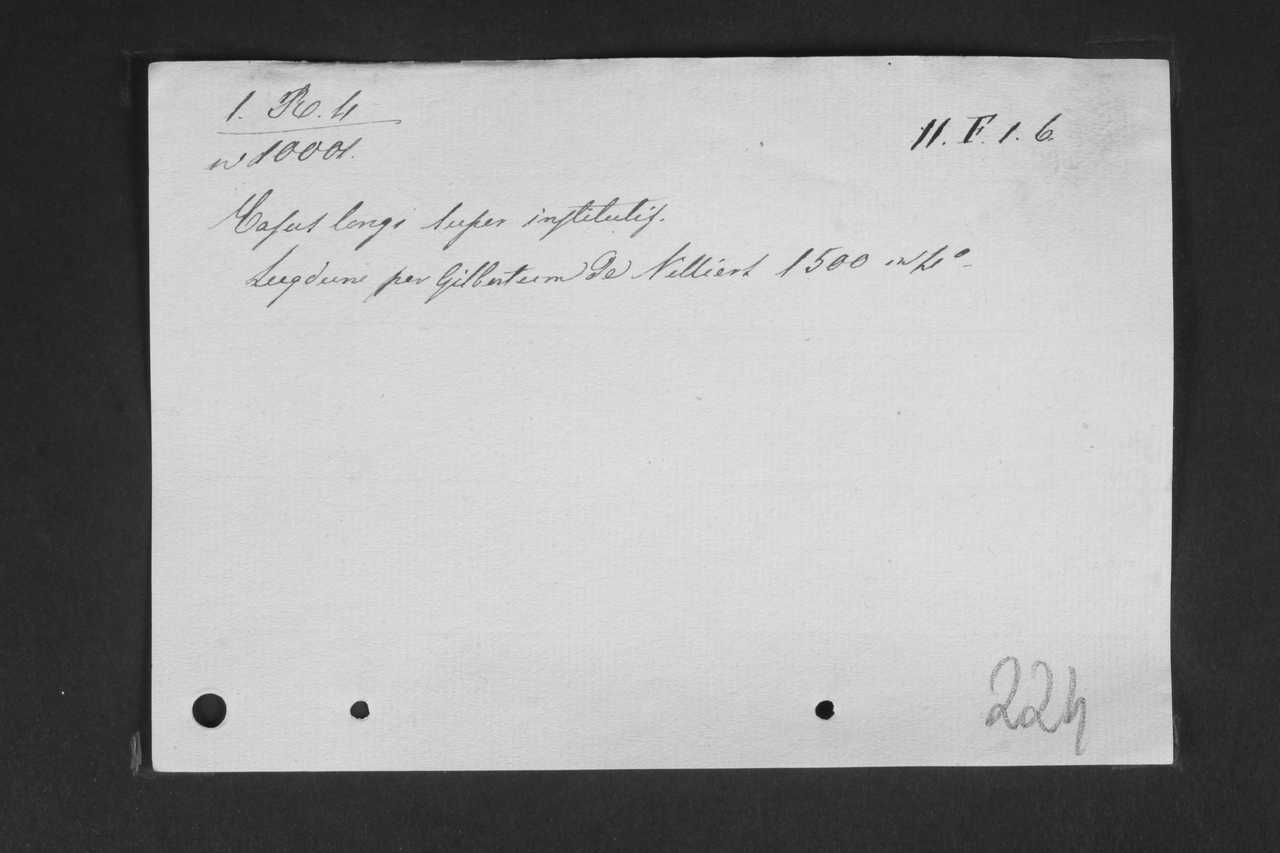 1. R. 4
11. F. 1. 6.
n⁰ 10001.
Casus longi super institutis.
Lugduni per Gilbertum de Villiers 1500 in 4⁰
224